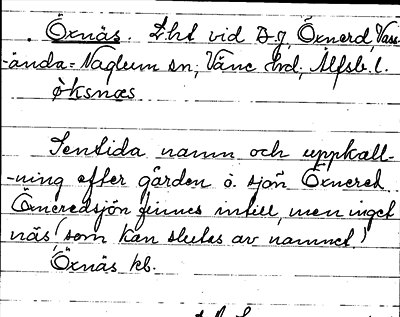 . Öxnäs. Lht vid D-g, Öxnerd, Vass-
-ända=Naglum sn, Väne hrd, Älfsb. l.
öksnæs
Sentida namn och uppkall-
-ning efter gården o. sjön Öxnered.
Öxneredsjön finnes intill, men inget
näs (som kan slutas av namnet.)
Öxnäs kb.